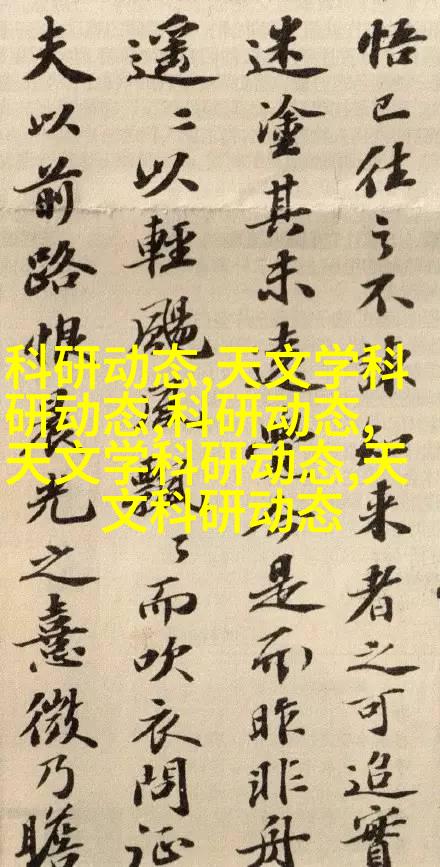 科研动态,天文学科
研动态,科研动态,
天文学科研动态,天
文科研动态
悟已往之不知来者之可追實
迷塗其未遠是而昨非舟
遥〻以輕颺飄〻而吹衣問征
夫以前路恨晨光之熹微乃瞻